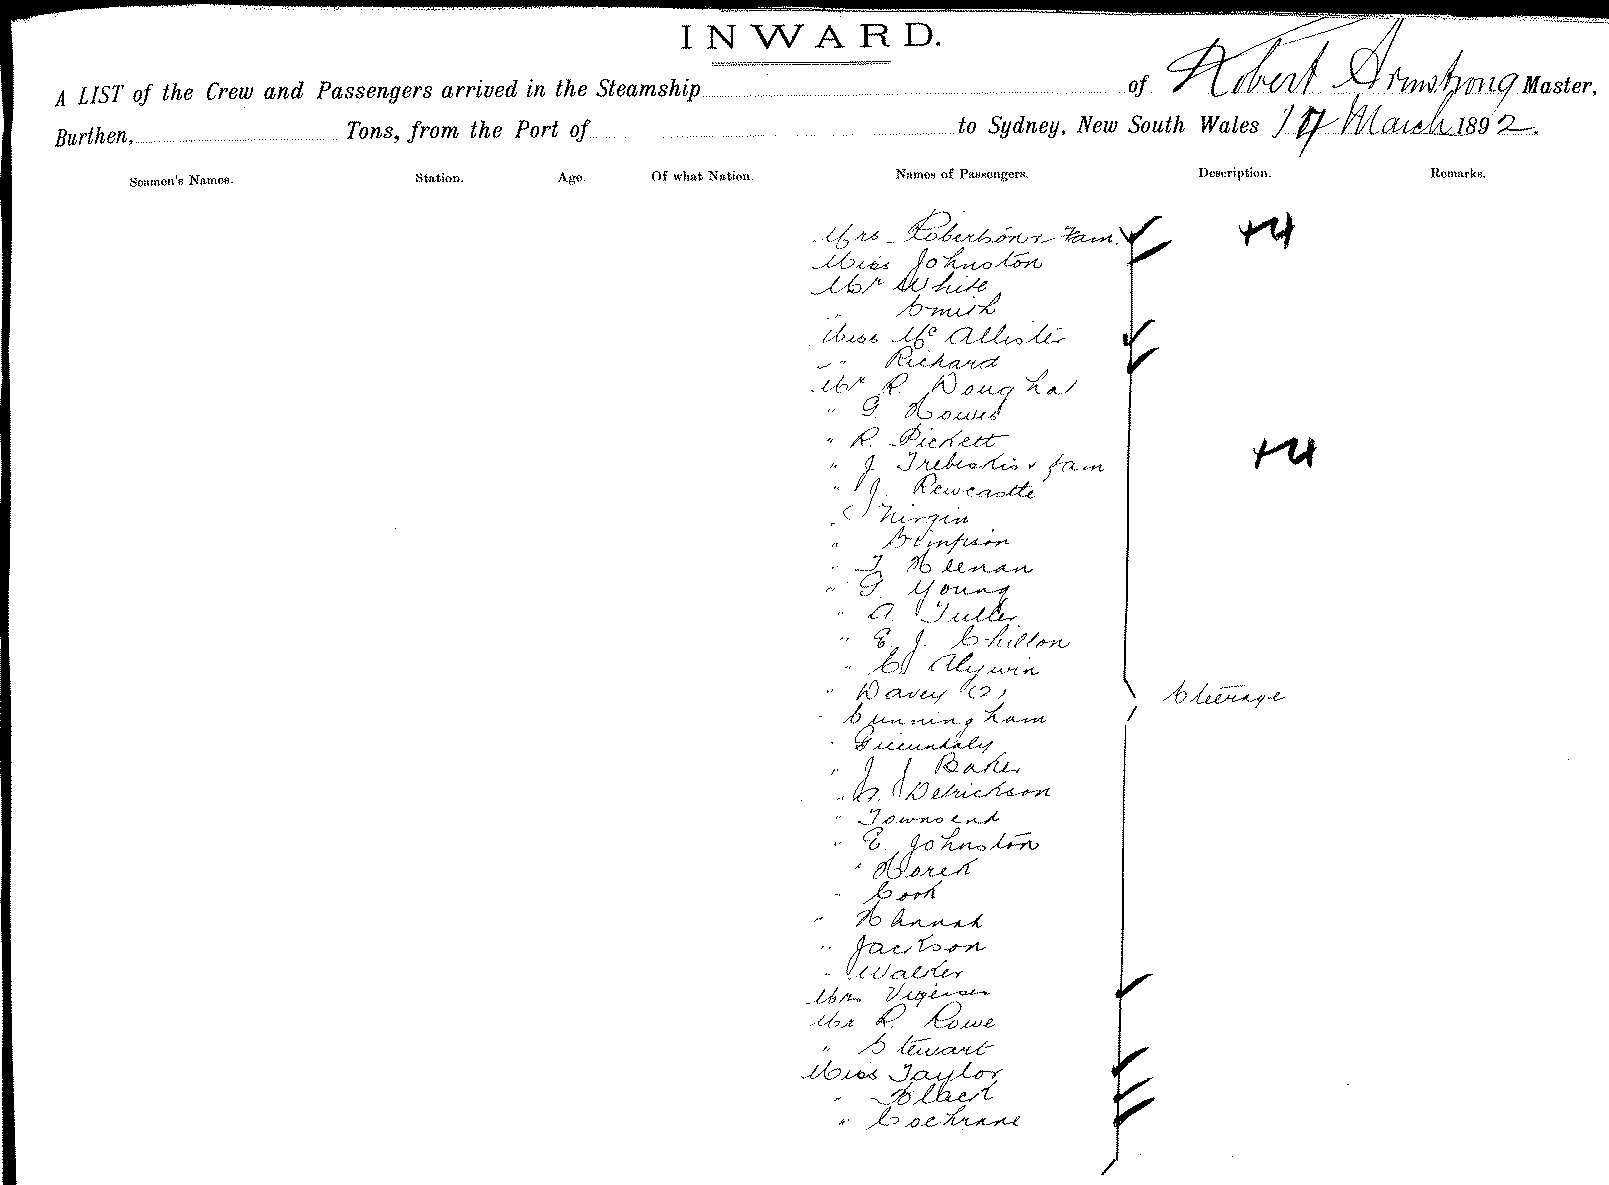 INWARD.
A LIST of the Crew and Passengers arrived in the Steamship of Robert Armstrong Master,
Burthen, Tons, from the Port of to Sydney, New South Wales 17 March 1892.
Seamen's Names. Station. Age. Of what Nation. Names of Passengers. Description. Remarks.
Mrs Robertson & Fam. +4
Miss Johnston
Mr White
" Smith
Miss Mc Allister
" Richard
Mr R.
" G.
" R. Pickett
" J. & fam +4
" J. Newcastle
" Virgin
" Simpson
" T Keenan
" G Young
" A. Fuller
" E. J. Chillon
" C. Alywin
" Davey (2) Steerage
" Cunningham
"
" J J Baker
" A. Detrickson
" Townsend
" E. Johnston
"
" Cook
" Hannah
" Jackson
" Walker
Mrs
Mr R. Rowe
" Stewart
Miss Taylor
" Black
" Cochrane